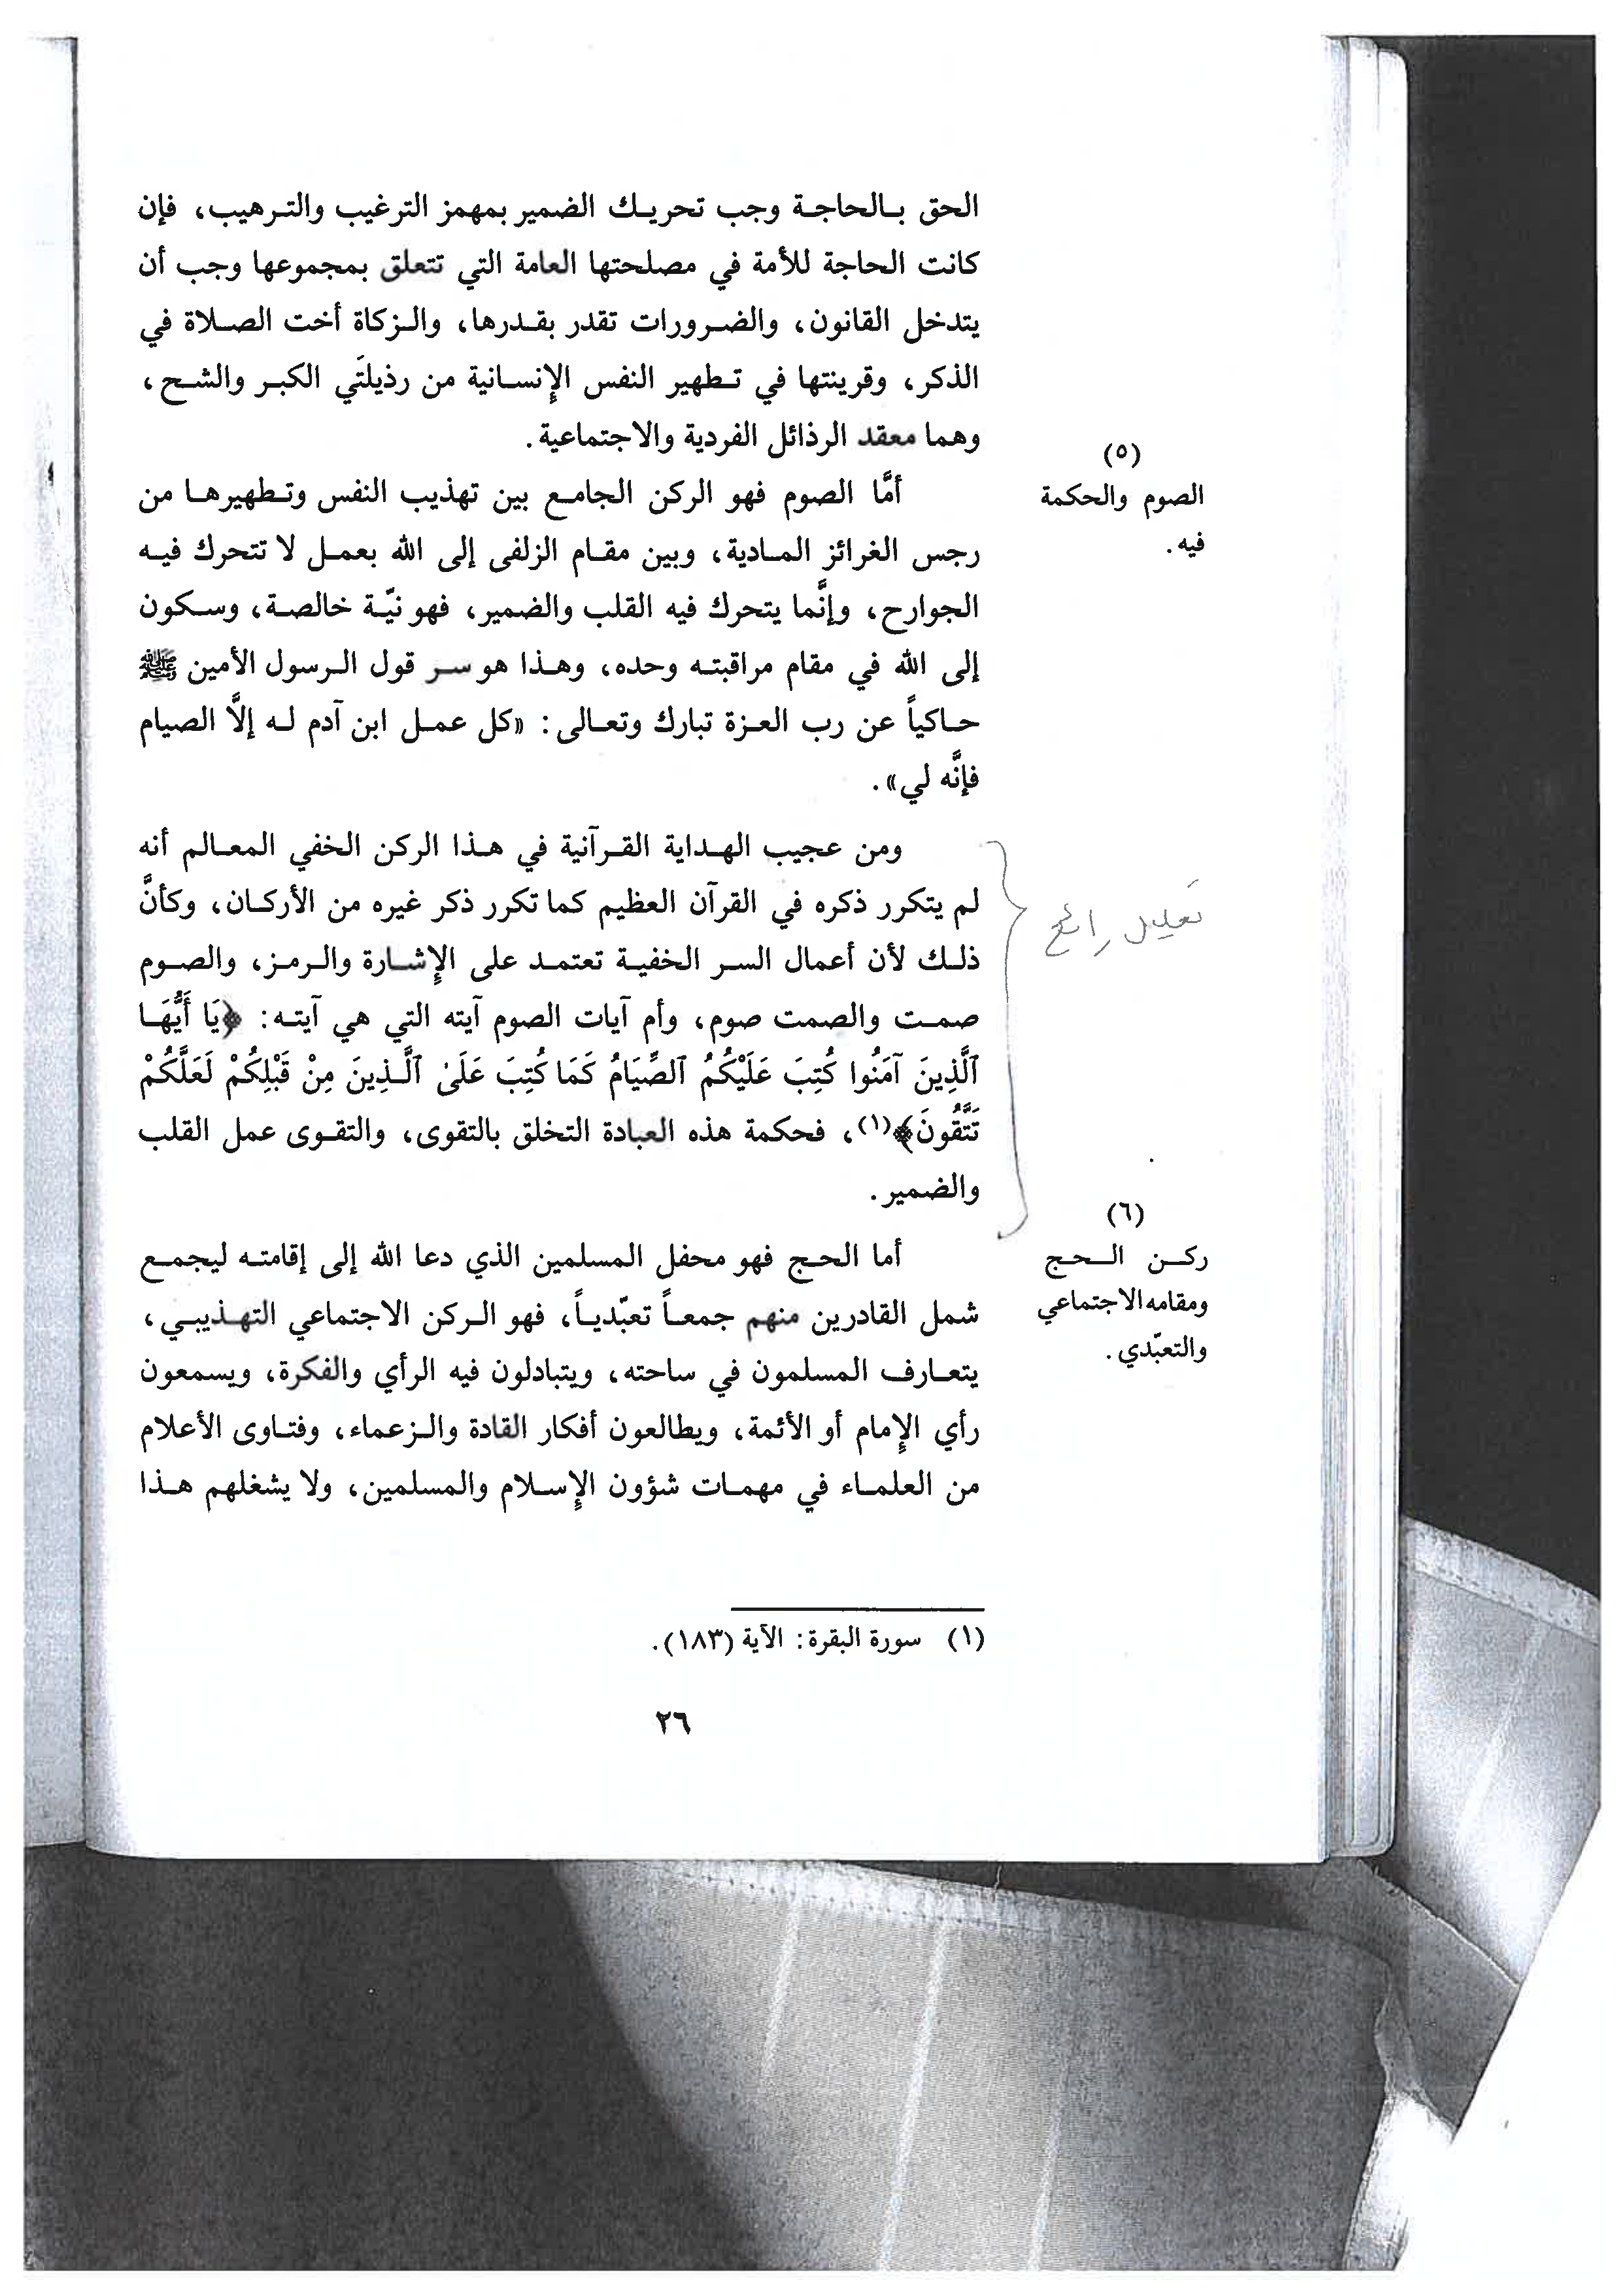 الحق بالحاجة وجب تحريك الضمير بمهمز الترغيب والترهيب، فإن
كانت الحاجة للأمة في مصلحتها العامة التي تتعلق بمجموعها وجب أن
يتدخل القانون، والضرورات تقدر بقدرها، والزكاة أخت الصلاة في
الذكر، وقرينتها في تطهير النفس الإنسانية من رذيلتَي الكبر والشح،
وهما معقد الرذائل الفردية والاجتماعية.
(٥)
الصوم والحكمة
فيه.
أمَّا الصوم فهو الركن الجامع بين تهذيب النفس وتطهيرها من
رجس الغرائز المادية، وبين مقام الزلفى إلى الله بعمل لا تتحرك فيه
الجوارح، وإنَّما يتحرك فيه القلب والضمير، فهو نيّة خالصة، وسكون
إلى الله في مقام مراقبته وحده، وهذا هو سر قول الرسول الأمين ﷺ
حاكياً عن رب العزة تبارك وتعالى: «كل عمل ابن آدم له إلَّا الصيام
فإنَّه لي».
ومن عجيب الهداية القرآنية في هذا الركن الخفي المعالم أنه
لم يتكرر ذكره في القرآن العظيم كما تكرر ذكر غيره من الأركان، وكأنَّ
ذلك لأن أعمال السر الخفية تعتمد على الإشارة والرمز، والصوم
صمت والصمت صوم، وأم آيات الصوم آيته التي هي آيته: ﴿يَا أَيُّهَا
ٱلَّذِينَ آمَنُوا كُتِبَ عَلَيْكُمُ ٱلصِّيَامُ كَمَا كُتِبَ عَلَىٰ ٱلَّذِينَ مِنْ قَبْلِكُمْ لَعَلَّكُمْ
تَتَّقُونَ﴾(١)، فحكمة هذه العبادة التخلق بالتقوى، والتقوى عمل القلب
والضمير.
تعليل رائع
(٦)
ركن الحج
ومقامه الاجتماعي
والتعبّدي.
أما الحج فهو محفل المسلمين الذي دعا الله إلى إقامته ليجمع
شمل القادرين منهم جمعاً تعبّدياً، فهو الركن الاجتماعي التهذيبي،
يتعارف المسلمون في ساحته، ويتبادلون فيه الرأي والفكرة، ويسمعون
رأي الإمام أو الأئمة، ويطالعون أفكار القادة والزعماء، وفتاوى الأعلام
من العلماء في مهمات شؤون الإسلام والمسلمين، ولا يشغلهم هذا
(١) سورة البقرة: الآية (١٨٣).
٢٦